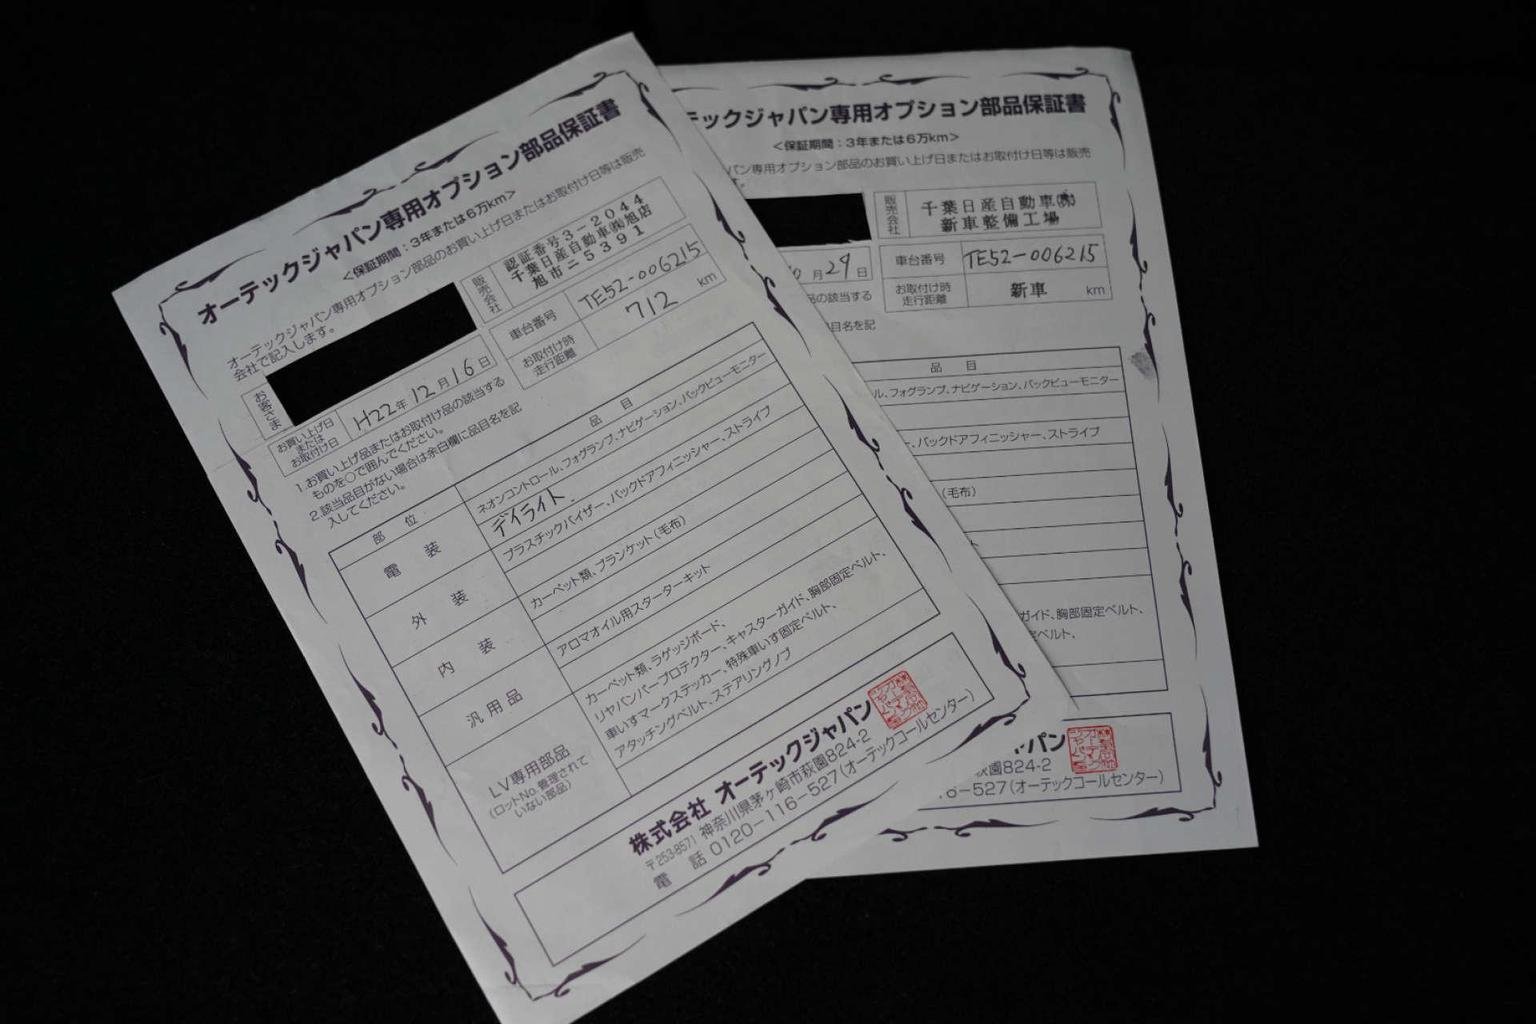 オーテックジャパン専用オプション部品保証書
<保証期間：3年または6万km>
オーテックジャパン専用オプション部品のお買い上げ日またはお取付け日等は販売
会社で記入します。
お客さま
販売会社
認証番号3-2044
千葉日産自動車㈱旭店
旭市ニ5391
お買い上げ日
または
お取付け日
H22年12月16日
車台番号
TE52-006215
お取付け時
走行距離
712 km
1.お買い上げ品またはお取付け品の該当する
ものを○で囲んでください。
2.該当品目がない場合は余白欄に品目名を記
入してください。
部位
品目
電装
ネオンコントロール、フォグランプ、ナビゲーション、バックビューモニター
デイライト.
外装
プラスチックバイザー、バックドアフィニッシャー、ストライプ
内装
カーペット類、ブランケット(毛布)
汎用品
アロマオイル用スターターキット
LV専用部品
(ロットNo.管理されて
いない部品)
カーペット類、ラゲッジボード、
リヤバンパープロテクター、キャスターガイド、胸部固定ベルト、
車いすマークステッカー、特殊車いす固定ベルト、
アタッチングベルト、ステアリングノブ
株式会社 オーテックジャパン
〒253-8571 神奈川県茅ヶ崎市萩園824-2
電話 0120-116-527(オーテックコールセンター)
テックジャパン専用オプション部品保証書
<保証期間：3年または6万km>
パン専用オプション部品のお買い上げ日またはお取付け日等は販売
す。
販売会社
千葉日産自動車㈱
新車整備工場
月29日
車台番号
TE52-006215
お取付け時
走行距離
新車 km
品の該当する
品目名を記
品目
ル、フォグランプ、ナビゲーション、バックビューモニター
ー、バックドアフィニッシャー、ストライプ
(毛布)
ト
ガイド、胸部固定ベルト、
定ベルト、
ャパン
萩園824-2
6-527(オーテックコールセンター)